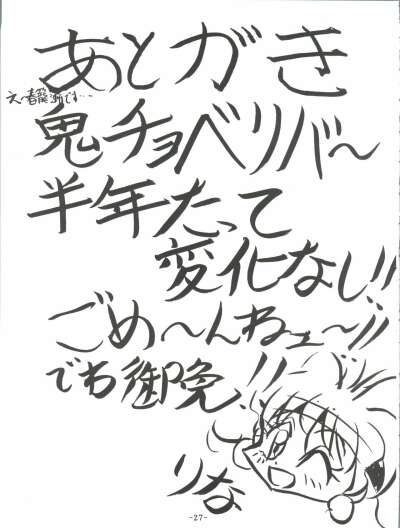 あとがき
え〜春籠瀬です…
鬼チョベリバ〜
半年たって
変化なし!!
ごめ〜んねェ〜!!
でわ御免!!
りな
-27-